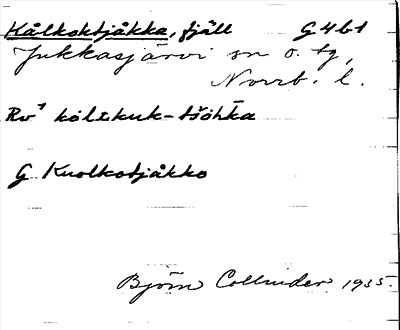 Kålkoktjåkka, fjäll G4b1
Jukkasjärvi sn o. tg,
Norrb. l.
Rv⁷ kölᴌkuk-tšöhka
G Kuolkotjåkko
Björn Collinder 1935.